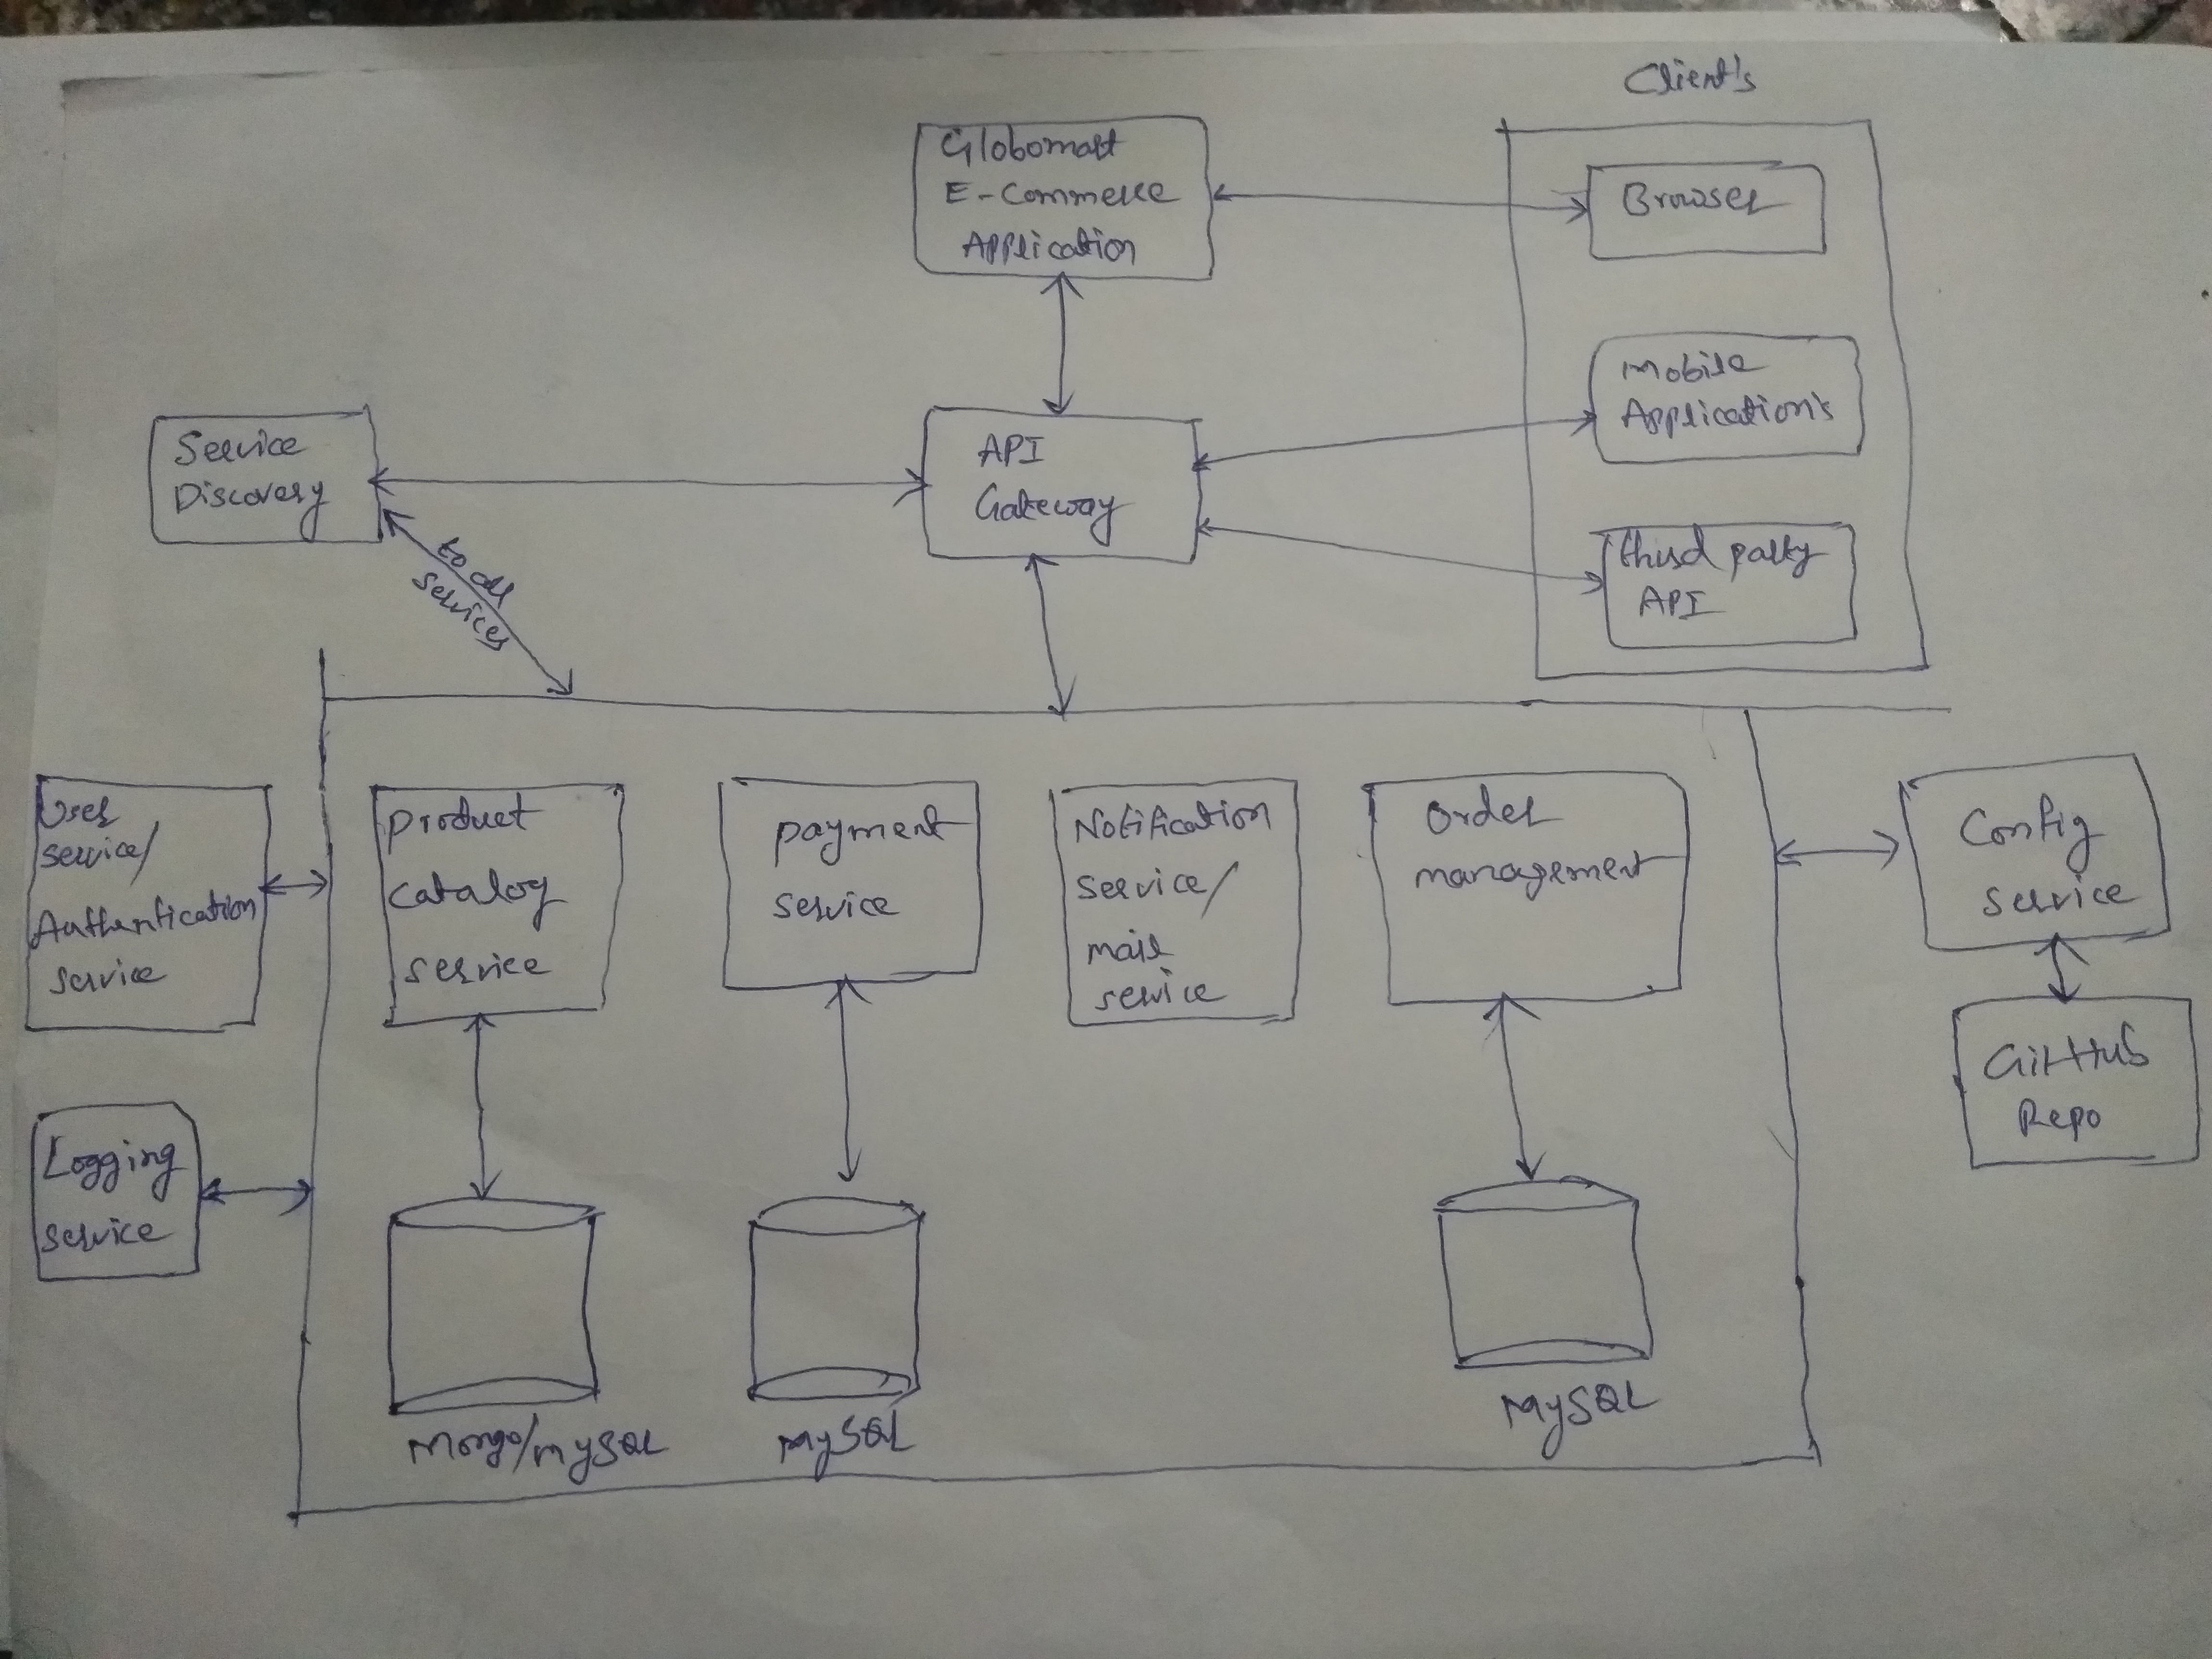 Client's
Globomart
E-Commerce
Application
Browser
Mobile
Application's
third party
API
Service
Discovery
API
Gateway
to all
services
User
service/
Authentication
service
product
catalog
service
payment
service
Notification
service/
mail
service
Order
management
Config
service
GitHub
Repo
Logging
service
Mongo/MySQL
MySQL
MySQL